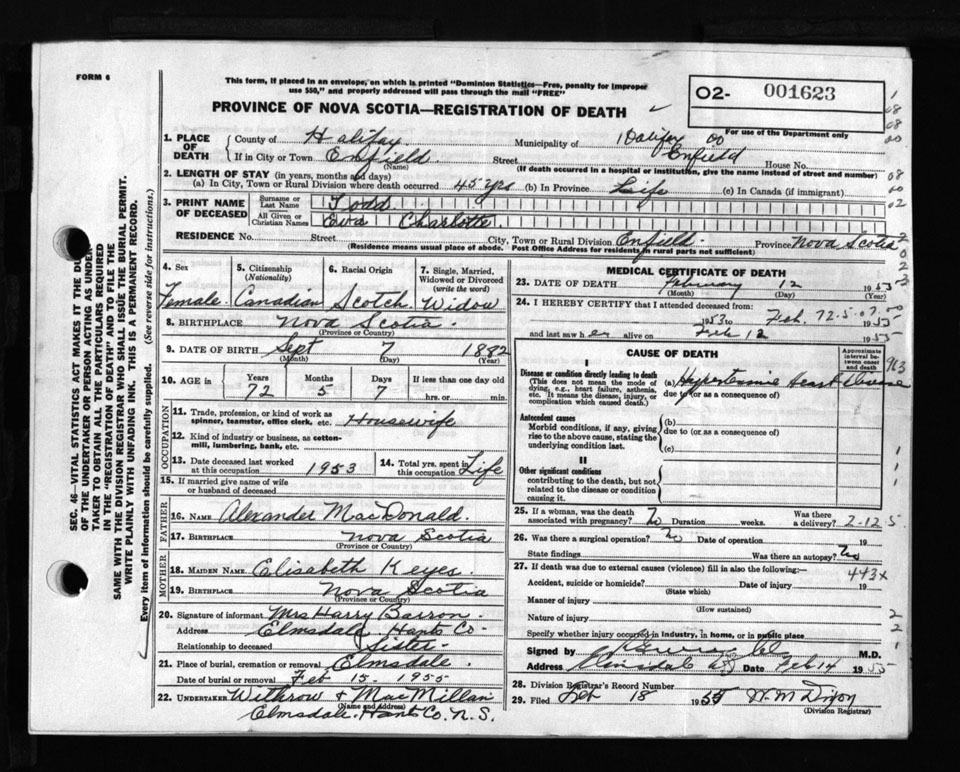 FORM 6
This form, if placed in an envelope, on which is printed "Dominion Statistics—Free, penalty for improper
use $50," and properly addressed will pass through the mail "FREE"
PROVINCE OF NOVA SCOTIA—REGISTRATION OF DEATH ✓
O2- 001623
For use of the Department only
1. PLACE OF DEATH
County of Halifax Municipality of Halifax 00
If in City or Town Enfield (Name) Street Enfield House No.
(If death occurred in a hospital or institution, give the name instead of street and number)
2. LENGTH OF STAY (in years, months and days)
(a) In City, Town or Rural Division where death occurred 45 yrs (b) In Province Life (c) In Canada (if immigrant)
3. PRINT NAME OF DECEASED
Surname or Last Name Todd
All Given or Christian Names Eva Charlotte
RESIDENCE No. Street City, Town or Rural Division Enfield Province Nova Scotia
(Residence means usual place of abode. Post Office Address for residents in rural parts not sufficient)
4. Sex Female
5. Citizenship (Nationality) Canadian
6. Racial Origin Scotch
7. Single, Married, Widowed or Divorced (write the word) Widow
8. BIRTHPLACE Nova Scotia.
(Province or Country)
9. DATE OF BIRTH Sept 7 1882
(Month) (Day)
10. AGE in Years Months Days If less than one day old
72 5 7 hrs. or min.
OCCUPATION
11. Trade, profession, or kind of work as spinner, teamster, office clerk, etc. Housewife
12. Kind of industry or business, as cotton-mill, lumbering, bank, etc.
13. Date deceased last worked at this occupation 1953
14. Total yrs. spent in this occupation Life
15. If married give name of wife or husband of deceased
FATHER
16. NAME Alexander MacDonald.
17. BIRTHPLACE Nova Scotia
(Province or Country)
MOTHER
18. MAIDEN NAME Elisabeth Keyes
19. BIRTHPLACE Nova Scotia
(Province or Country)
20. Signature of informant Mrs Harry Barron.
Address Elmsdale Hants Co-
Relationship to deceased Sister
21. Place of burial, cremation or removal Elmsdale.
Date of burial or removal Feb 15. 1955
22. UNDERTAKER Withrow & MacMillan
(Name and address)
Elmsdale. Hants Co. N.S.
MEDICAL CERTIFICATE OF DEATH
23. DATE OF DEATH February 12 1955
(Month) (Day) (Year)
24. I HEREBY CERTIFY that I attended deceased from:
1953 to Feb. 1955
72-5-07.00
and last saw her alive on Feb 12 1955
CAUSE OF DEATH
Approximate interval between onset and death
963
I
Disease or condition directly leading to death
(This does not mean the mode of dying, e.g., heart failure, asthenia, etc. It means the disease, injury, or complication which caused death.)
(a) Hypertensive Heart Disease
due to (or as a consequence of)
Antecedent causes
Morbid conditions, if any, giving rise to the above cause, stating the underlying condition last.
(b)
due to (or as a consequence of)
(c)
II
Other significant conditions
contributing to the death, but not related to the disease or condition causing it.
25. If a woman, was the death associated with pregnancy? No Duration weeks. Was there a delivery? 2-12.5.
26. Was there a surgical operation? No Date of operation 19
State findings Was there an autopsy? No
27. If death was due to external causes (violence) fill in also the following:—
443x
Accident, suicide or homicide? Date of injury 19
(State which)
Manner of injury
(How sustained)
Nature of injury
Specify whether injury occurred in industry, in home, or in public place
Signed by M.D.
Address Elmsdale NS Date Feb 14 1955
28. Division Registrar's Record Number
29. Filed Feb 18 1955 W. M. Dixon
(Division Registrar)
SEC. 46—VITAL STATISTICS ACT MAKES IT THE DU
OF THE UNDERTAKER OR PERSON ACTING AS UNDER-
TAKER TO OBTAIN ALL THE PARTICULARS REQUIRED
IN THE "REGISTRATION OF DEATH" AND TO FILE THE
SAME WITH THE DIVISION REGISTRAR WHO SHALL ISSUE THE BURIAL PERMIT.
WRITE PLAINLY WITH UNFADING INK. THIS IS A PERMANENT RECORD.
Every item of information should be carefully supplied. (See reverse side for instructions.)
1
08
08
00
08
00
02
2
0
2
3
1
1
2
2